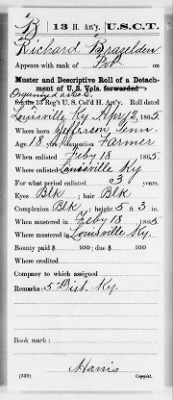 B 13 H. Art'y. U.S.C.T.
Richard Brazelden
Appears with rank of Pvt on
Muster and Descriptive Roll of a Detachment
of U. S. Vols. forwarded
Organized as Co. E.
for the 13 Reg't U. S. Col'd H. Art'y. Roll dated
Louisville Ky Apr 12, 1865.
Where born Jefferson, Tenn.
Age 18 y'rs; occupation Farmer
When enlisted Feby 18, 1865.
Where enlisted Louisville Ky
For what period enlisted 3 years.
Eyes Blk; hair Blk
Complexion Blk; height 5 ft. 3 in.
When mustered in Feby 18, 1865.
Where mustered in Louisville Ky.
Bounty paid $ 100; due $ 100
Where credited
Company to which assigned
Remarks: 5 Dist. Ky.
Book mark:
Harris
(339) Copyist.